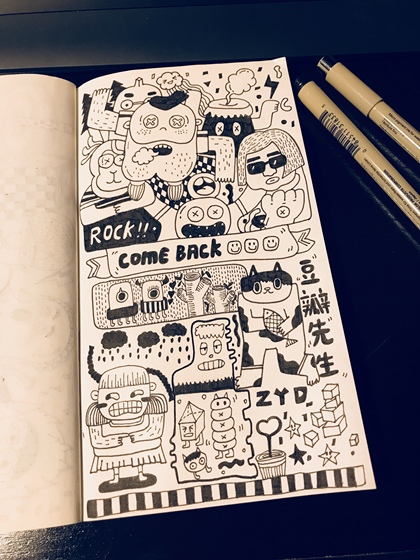 ROCK!!
COME BACK
豆瓣先生
ZYD